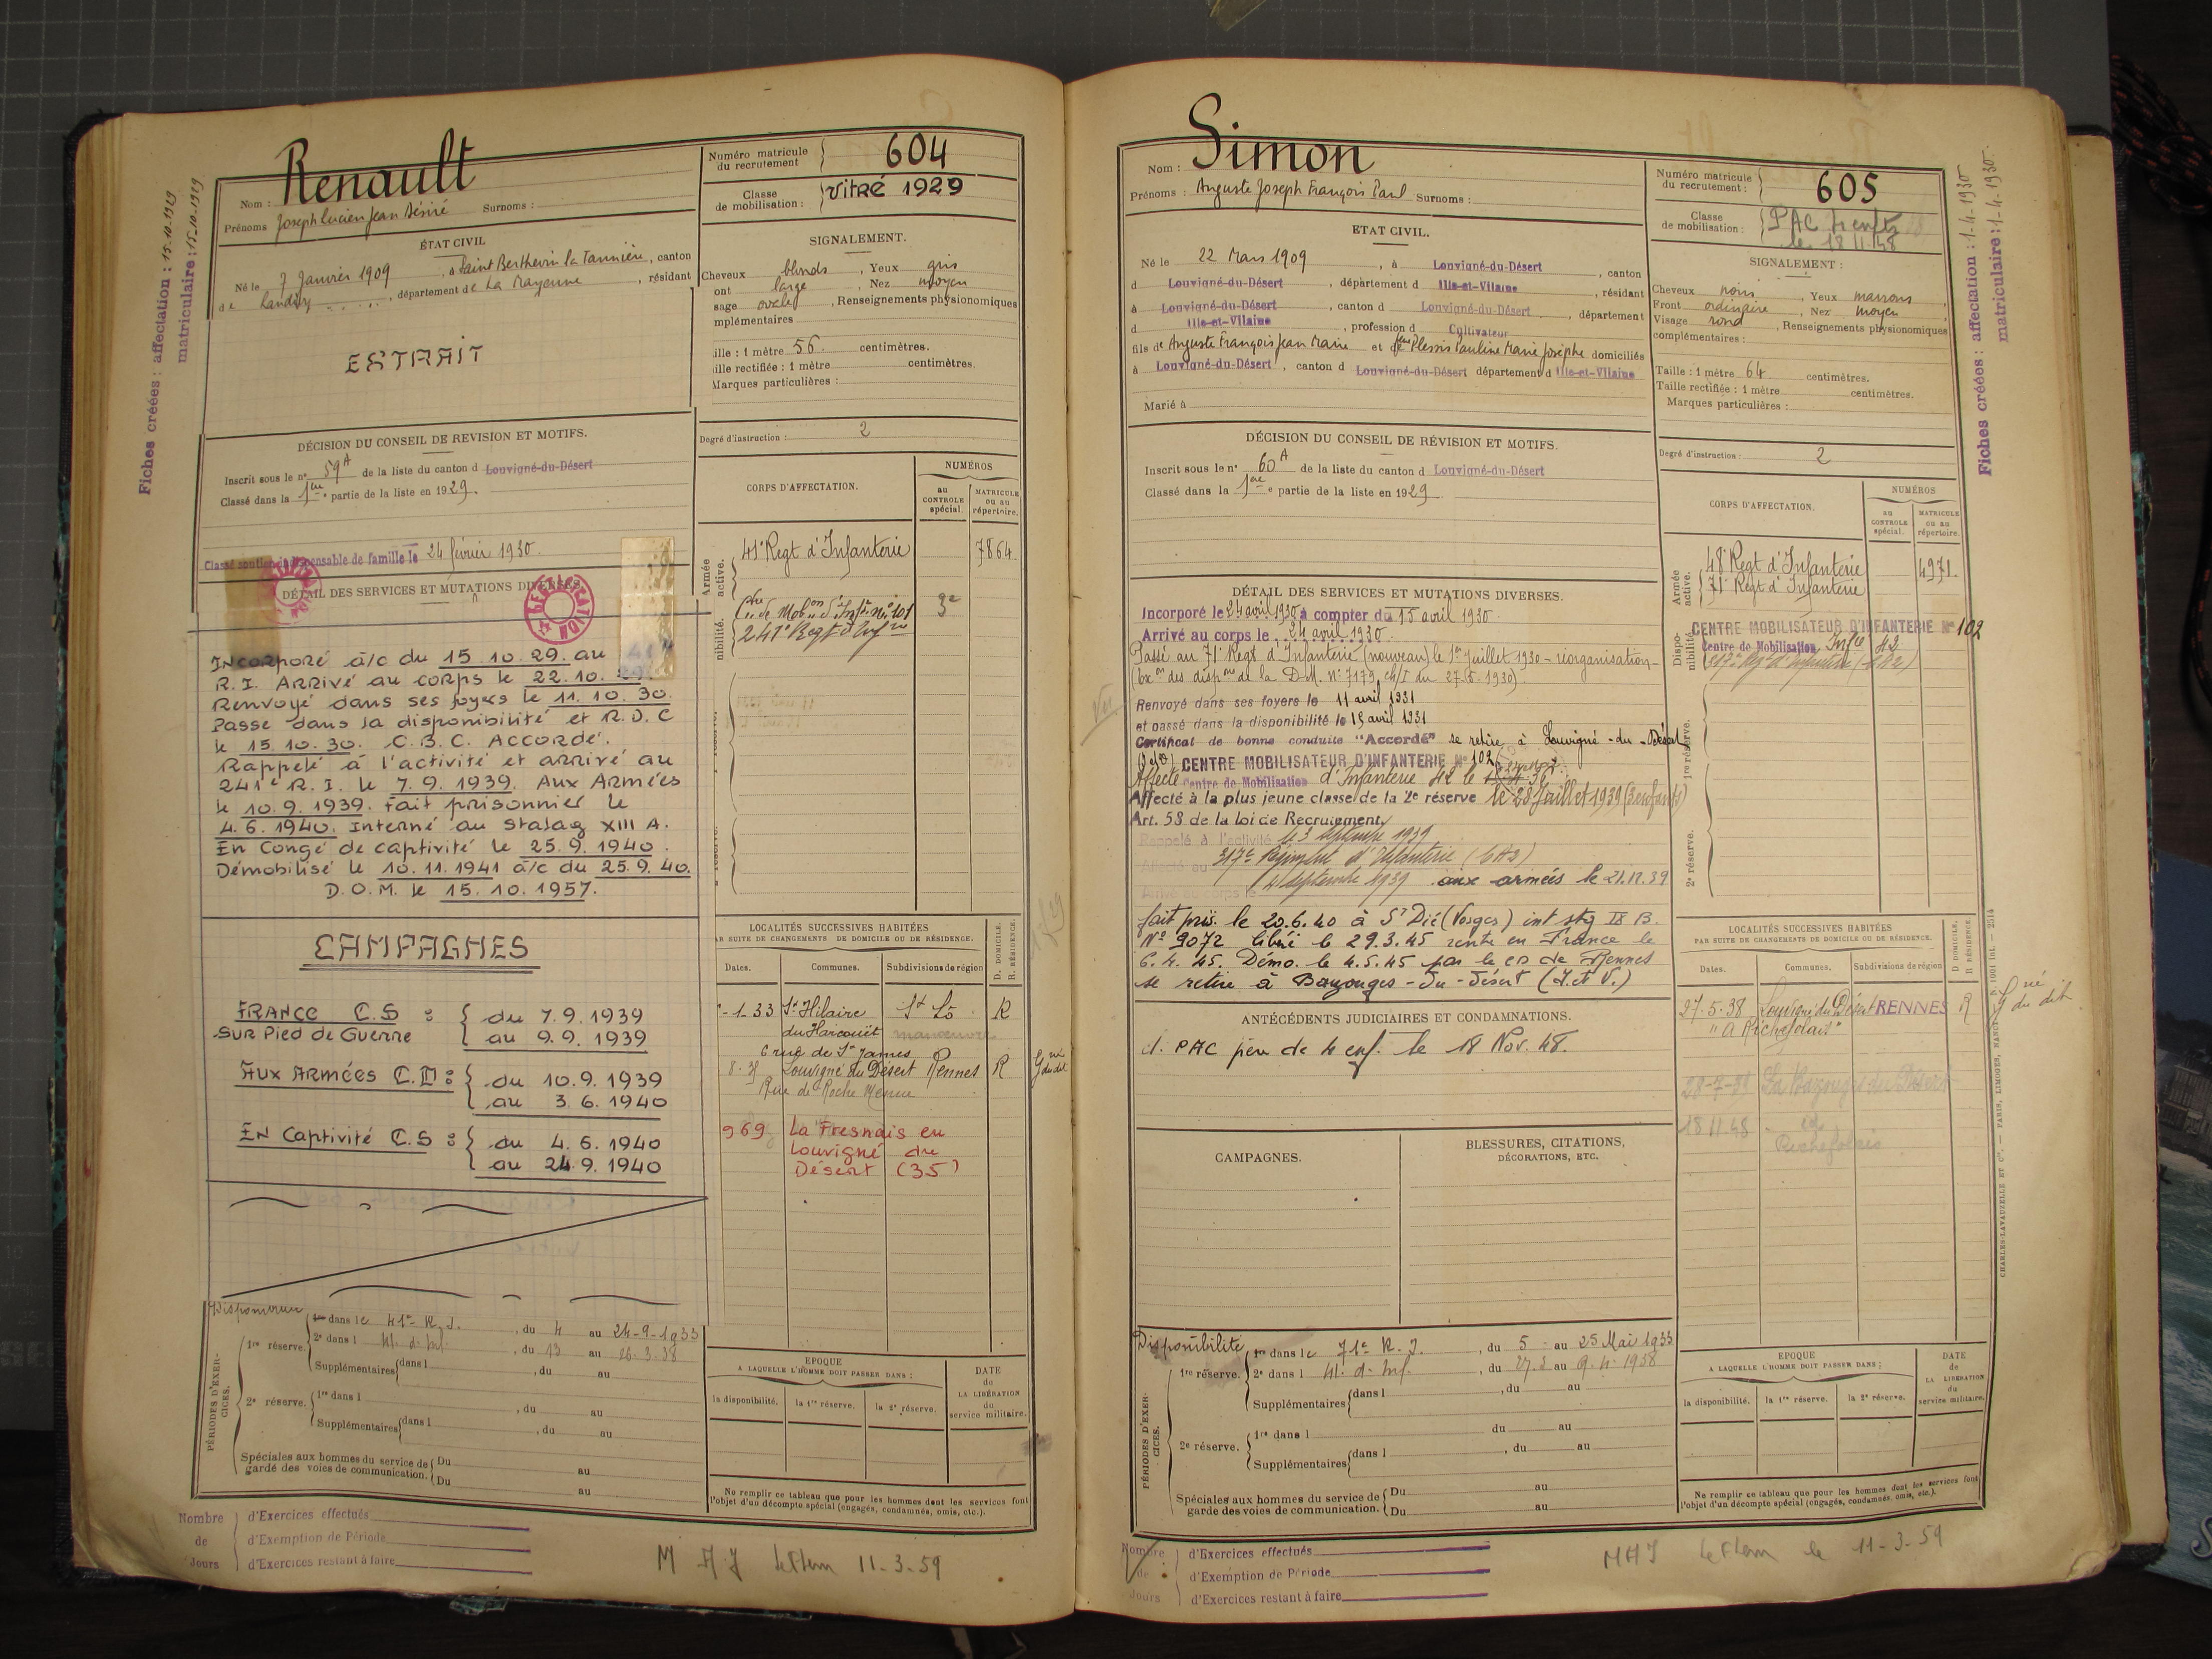 Fiches créées : affectation : 15-10-1929
matriculaire : 15-10-1929
Renault
Nom :
Prénoms Joseph Lucien Jean Désiré Surnoms :
Numéro matricule du recrutement 604
Classe de mobilisation : Vitré 1929
ÉTAT CIVIL
Né le 7 Janvier 1909, à Saint Berthevin la Tannière, canton
de Landivy, département de La Mayenne, résidant
EXTRAIT
SIGNALEMENT.
Cheveux blonds, Yeux gris
ont large, Nez moyen
sage ovale, Renseignements physionomiques
mplémentaires
ille : 1 mètre 56 centimètres.
ille rectifiée : 1 mètre centimètres.
Marques particulières :
Degré d'instruction : 2
DÉCISION DU CONSEIL DE REVISION ET MOTIFS.
Inscrit sous le n° 59 A de la liste du canton d Louvigné-du-Désert
Classé dans la 1ère partie de la liste en 1929.
Classé soutien indispensable de famille le 24 février 1930.
DÉTAIL DES SERVICES ET MUTATIONS DIVERSES.
Incorporé à/c du 15.10.29. au
R.I. Arrivé au corps le 22.10.
Renvoyé dans ses foyers le 11.10.30.
Passé dans la disponibilité et R.D.C
le 15.10.30. C.B.C. Accordé.
Rappelé à l'activité et arrivé au
241e R.I. le 7.9.1939. Aux Armées
le 10.9.1939. fait prisonnier le
4.6.1940. Interné au Stalag XIII A.
En Congé de captivité le 25.9.1940.
Démobilisé le 10.11.1941 à/c du 25.9.40.
D.O.M. le 15.10.1957.
CAMPAGNES
FRANCE C.S : du 7.9.1939
Sur Pied de Guerre au 9.9.1939
Aux Armées C.D : du 10.9.1939
au 3.6.1940
En Captivité C.S : du 4.6.1940
au 24.9.1940
CORPS D'AFFECTATION.
NUMÉROS
au CONTROLE spécial.
MATRICULE ou au répertoire.
Armée active.
41e Regt d'Infanterie 7864.
nibilité.
Ctre de Mobon d'Infie No 101 3e
241e Regt d'Infie
LOCALITÉS SUCCESSIVES HABITÉES
AR SUITE DE CHANGEMENTS DE DOMICILE OU DE RÉSIDENCE.
D. DOMICILE.
R. RÉSIDENCE
Dates. Communes. Subdivisions de région
-1-33 St Hilaire St Lô R
du Harcouët manoeuvre
6 rue de St James
8-35 Louvigné du Désert Rennes R
Rue de Roche
969 La Fresnais en
Louvigné du
Désert (35)
PÉRIODES D'EXERCICES.
1re réserve.
1re dans le 41e R.I., du 4 au 24-9-1933
2e dans l, du 13 au 26-3-38
Supplémentaires dans l, du au
2e réserve.
1re dans l, du au
Supplémentaires dans l, du au
Spéciales aux hommes du service de garde des voies de communication.
Du au
Du au
EPOQUE
A LAQUELLE L'HOMME DOIT PASSER DANS :
la disponibilité. la 1re réserve. la 2e réserve.
DATE de LA LIBÉRATION du service militaire.
Ne remplir ce tableau que pour les hommes dont les services font
l'objet d'un décompte spécial (engagés, condamnés, omis, etc.).
Nombre de Jours
d'Exercices effectués
d'Exemption de Période
d'Exercices restant à faire
11-3-59
Simon
Nom :
Prénoms : Auguste Joseph François Paul Surnoms :
Numéro matricule du recrutement : 605
Classe de mobilisation : PAC
le 18 11 48
Fiches créées : affectation : 1-4-1930
matriculaire : 1-4-1930
ETAT CIVIL.
Né le 22 Mars 1909, à Louvigné-du-Désert, canton
d Louvigné-du-Désert, département d Ille-et-Vilaine, résidant
à Louvigné-du-Désert, canton d Louvigné-du-Désert, département
d Ille-et-Vilaine, profession d Cultivateur
fils de Auguste François Jean Marie et de Plessis Pauline Marie Josèphe domiciliés
à Louvigné-du-Désert, canton d Louvigné-du-Désert département d Ille-et-Vilaine
Marié à
SIGNALEMENT :
Cheveux noirs, Yeux marrons,
Front ordinaire, Nez moyen
Visage rond, Renseignements physionomiques
complémentaires :
Taille : 1 mètre 64 centimètres.
Taille rectifiée : 1 mètre centimètres.
Marques particulières :
Degré d'instruction : 2
DÉCISION DU CONSEIL DE RÉVISION ET MOTIFS.
Inscrit sous le n° 60 A de la liste du canton d Louvigné-du-Désert
Classé dans la 1ère partie de la liste en 1929.
DÉTAIL DES SERVICES ET MUTATIONS DIVERSES.
Incorporé le 24 avril 1930 à compter du 15 avril 1930
Arrivé au corps le 24 avril 1930.
Passé au 71e Regt d'Infanterie (nouveau) le 1er Juillet 1930 - réorganisation -
(Exon des dispons de la D.M. No 7179 du 27.5.1930)
Renvoyé dans ses foyers le 11 avril 1931
et passé dans la disponibilité le 15 avril 1931
Certificat de bonne conduite "Accordé" se retire à Louvigné-du-Désert
CENTRE MOBILISATEUR D'INFANTERIE No 102
Affecté Centre de Mobilisation d'Infanterie 42 le
Affecté à la plus jeune classe de la 2e réserve le 28 Juillet 1939 (3 enfants)
Art. 58 de la loi de Recrutement
Rappelé à l'activité le 3 septembre 1939
Affecté au 317e Régiment d'Infanterie
4 septembre 1939 aux armées le 21.12.39
fait pris. le 20.6.40 à St Dié (Vosges) int stg IX B.
No 9072 libéré le 29.3.45 rentré en France le
6.4.45. Démo. le 4.5.45 par le CD de Rennes
se retire à Bazouges-du-Désert (I. et V.)
ANTÉCÉDENTS JUDICIAIRES ET CONDAMNATIONS.
d. PAC père de 4 enf. le 18 Nov. 48.
CAMPAGNES.
BLESSURES, CITATIONS,
DÉCORATIONS, ETC.
CORPS D'AFFECTATION.
NUMÉROS
au CONTROLE spécial.
MATRICULE ou au répertoire.
Armée active.
48e Regt d'Infanterie 4971.
71e Regt d'Infanterie
Disponibilité
CENTRE MOBILISATEUR D'INFANTERIE No 102
Centre de Mobilisation Infie 42
1re réserve.
2e réserve.
LOCALITÉS SUCCESSIVES HABITÉES
PAR SUITE DE CHANGEMENTS DE DOMICILE OU DE RÉSIDENCE.
D DOMICILE.
R RÉSIDENCE
Dates. Communes. Subdivisions de région
27-5-38 Louvigné du Désert RENNES R
28-7-38 La Bazouges du Désert
18 11 48
Disponibilité
PÉRIODES D'EXERCICES.
1re réserve.
1re dans le 71e R.I., du 5 au 25 Mai 1933
2e dans l, du 27.3 au 9.4.1938
Supplémentaires dans l, du au
2e réserve.
1re dans l du au
Supplémentaires dans l, du au
Spéciales aux hommes du service de garde des voies de communication.
Du au
Du au
EPOQUE
A LAQUELLE L'HOMME DOIT PASSER DANS :
la disponibilité. la 1re réserve. la 2e réserve.
DATE de LA LIBÉRATION du service militaire.
Ne remplir ce tableau que pour les hommes dont les services font
l'objet d'un décompte spécial (engagés, condamnés, omis, etc.).
Nombre de Jours
d'Exercices effectués
d'Exemption de Période
d'Exercices restant à faire
le 11-3-59
CHARLES-LAVAUZELLE ET Cie. — PARIS, LIMOGES, NANCY